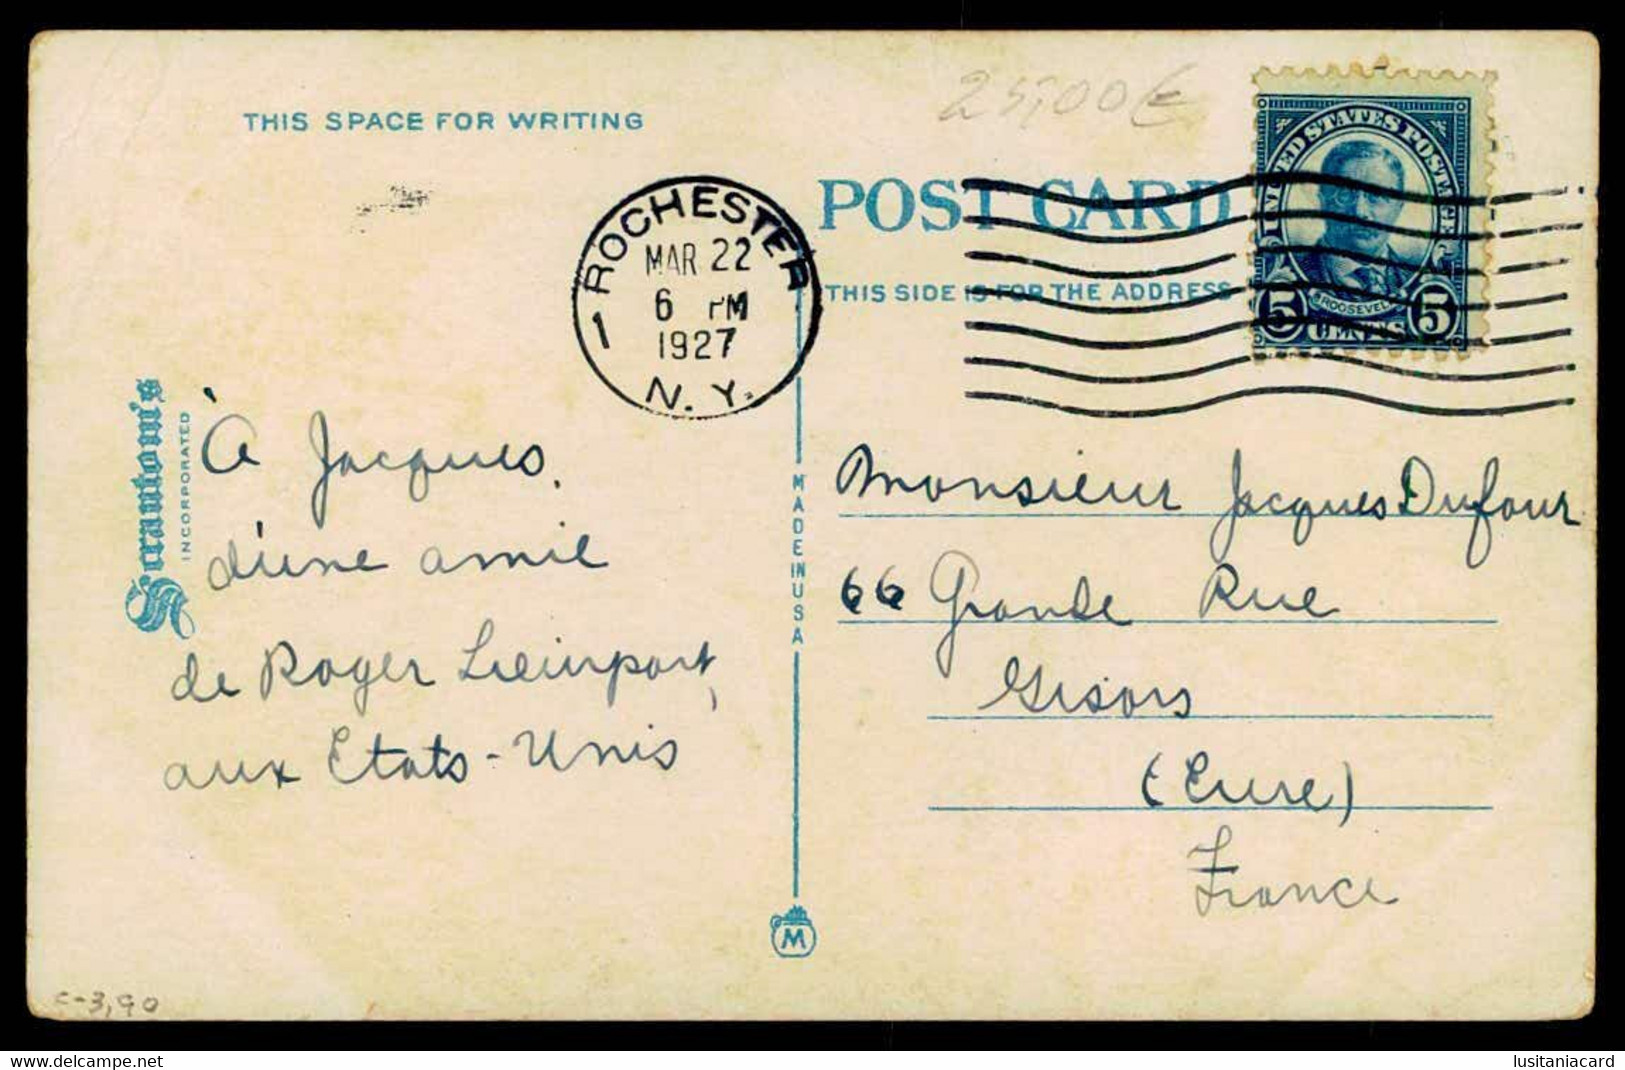 THIS SPACE FOR WRITING
25,00€
POST CARD
THIS SIDE IS FOR THE ADDRESS
UNITED STATES POSTAGE
ROOSEVELT
5 CENTS 5
ROCHESTER
MAR 22
6 PM
1927
1 N.Y.
Scrantom's
INCORPORATED
À Jacques,
d'une amie
de Roger
aux Etats-Unis
MADE IN USA
Monsieur Jacques Dufour
66 Grande Rue
Gisors
(Eure)
France
M
c-3,90
www.delcampe.net
lusitaniacard